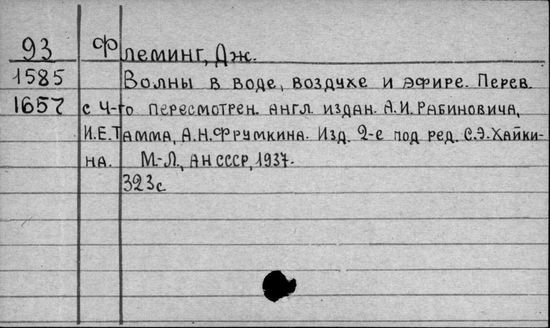 93 Флеминг, Дж.
1585 Волны в воде, воздухе и эфире. Перев.
1657 с 4-го пересмотрен. англ. издан. А.И. Рабиновича,
И.Е. Тамма, А.Н. Фрумкина. Изд. 2-е под ред. С.Э. Хайки-
на. М.-Л., АН СССР, 1937.
323с.